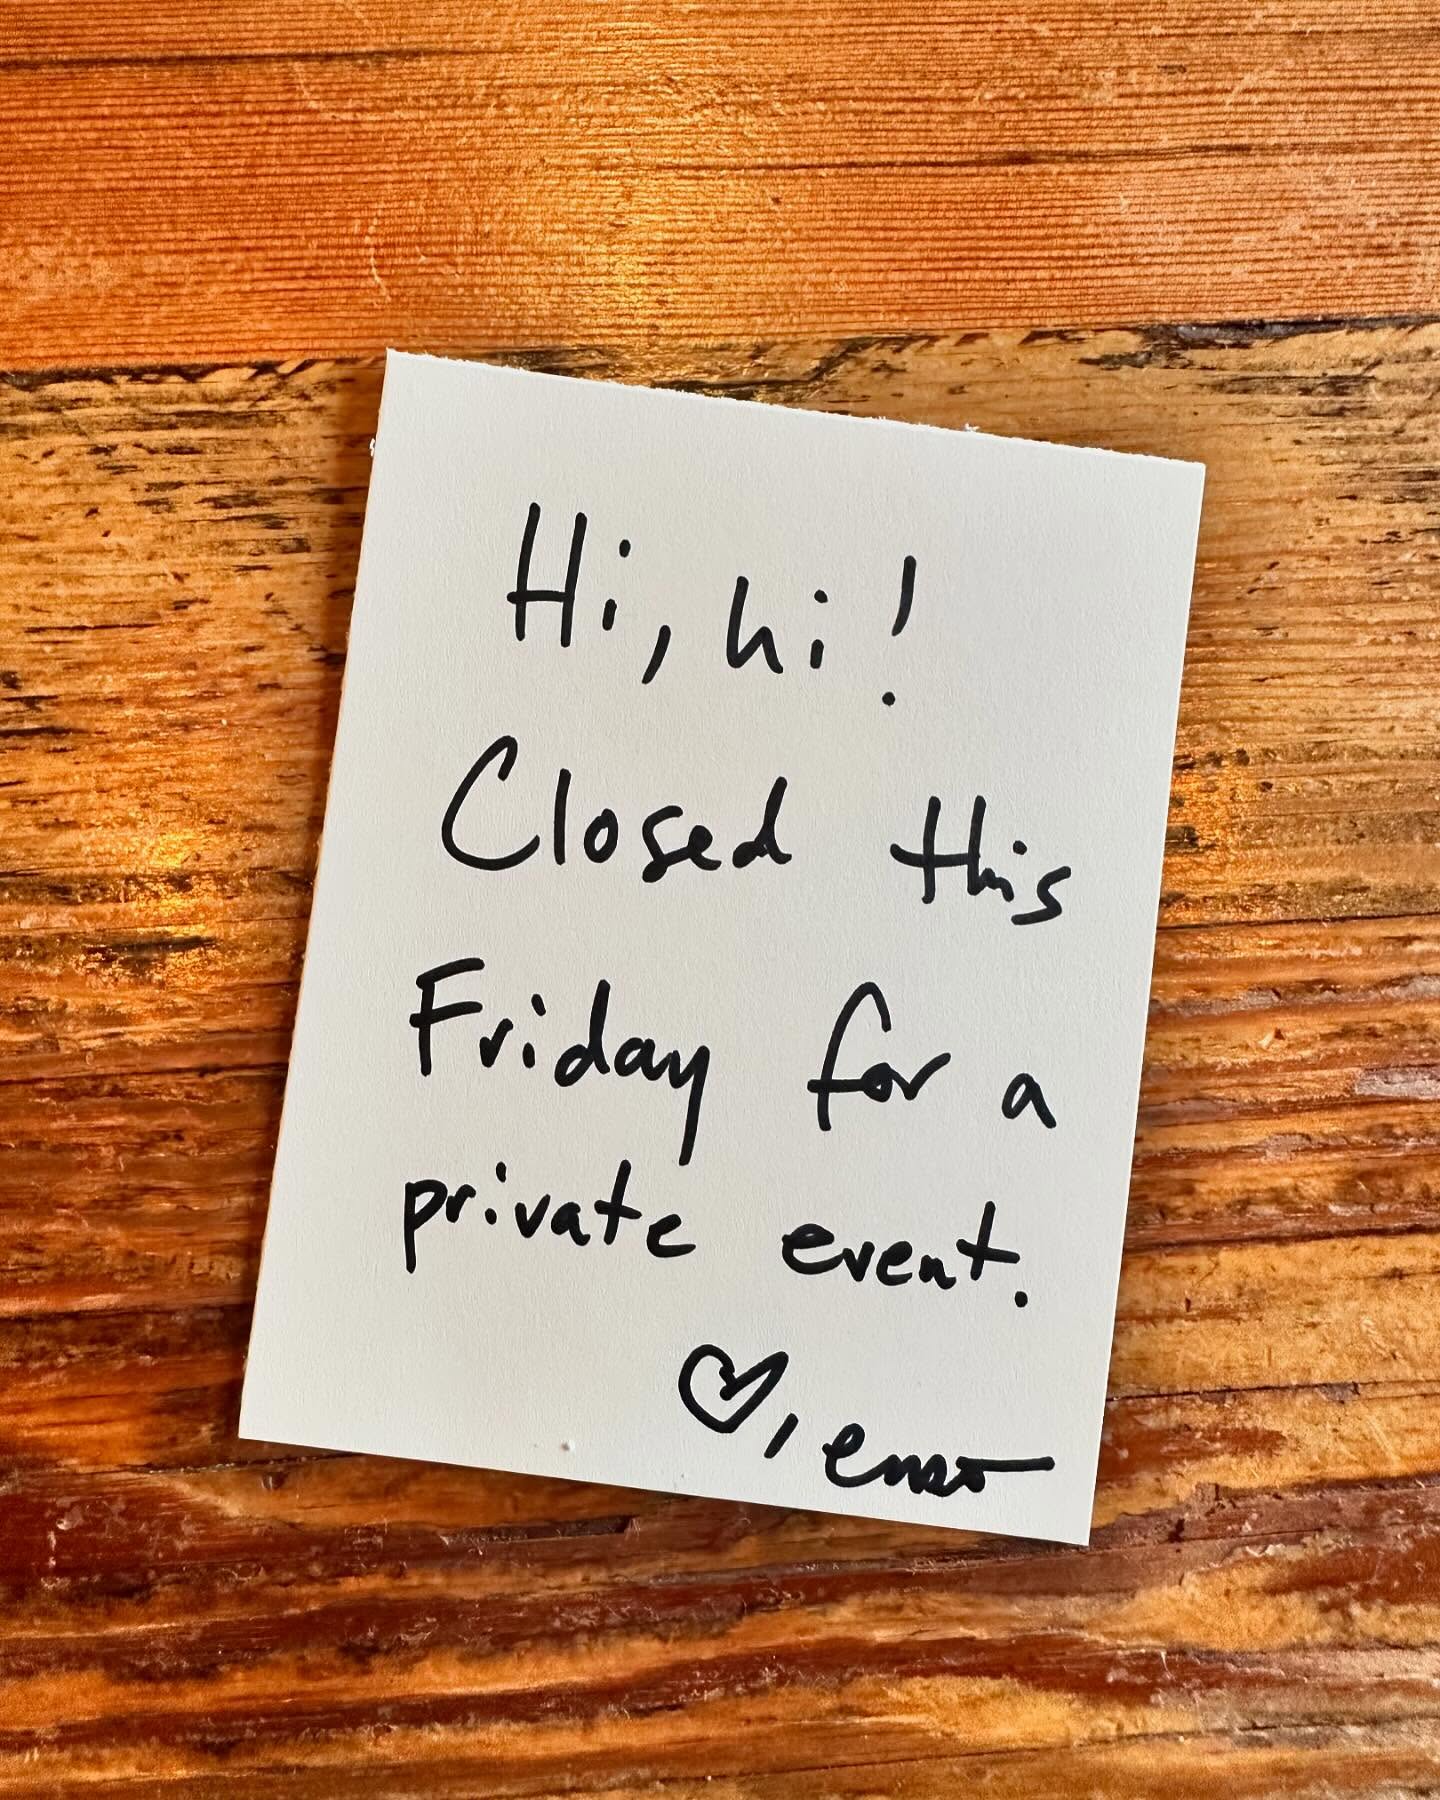 Hi, hi!
Closed this
Friday for a
private event.
♡, enso